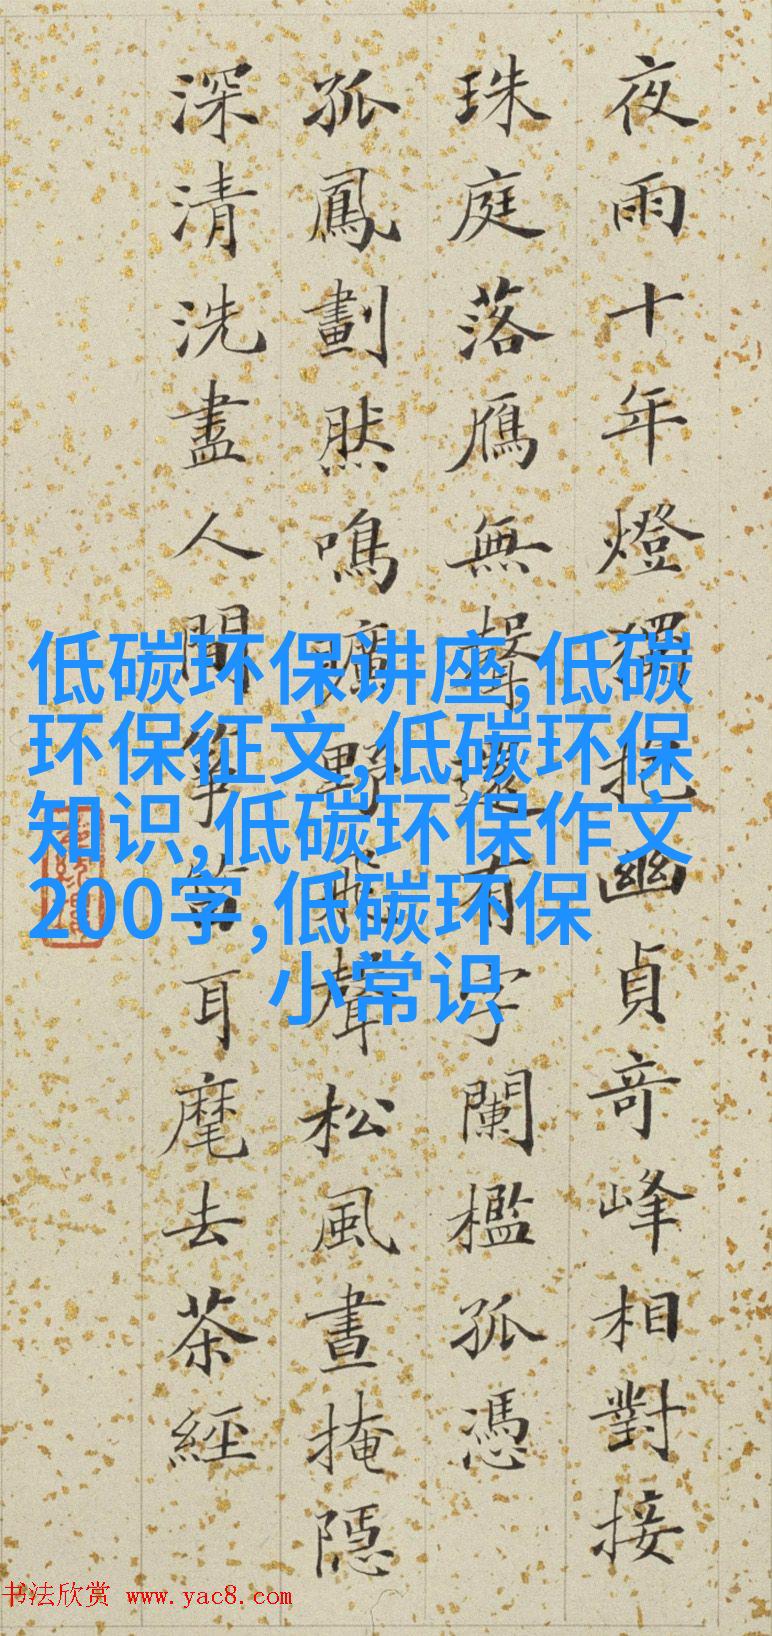 夜雨十年燈獨抱幽貞奇峰相對接
珠庭落鴈無聲還有字闌檻孤憑
孤鳳劃然鳴曠野飛聲松風晝掩隱
深清洗盡人間箏笛耳麾去茶經
低碳环保讲座,低碳
环保征文,低碳环保
知识,低碳环保作文
200字,低碳环保
小常识
书法欣赏 www.yac8.com